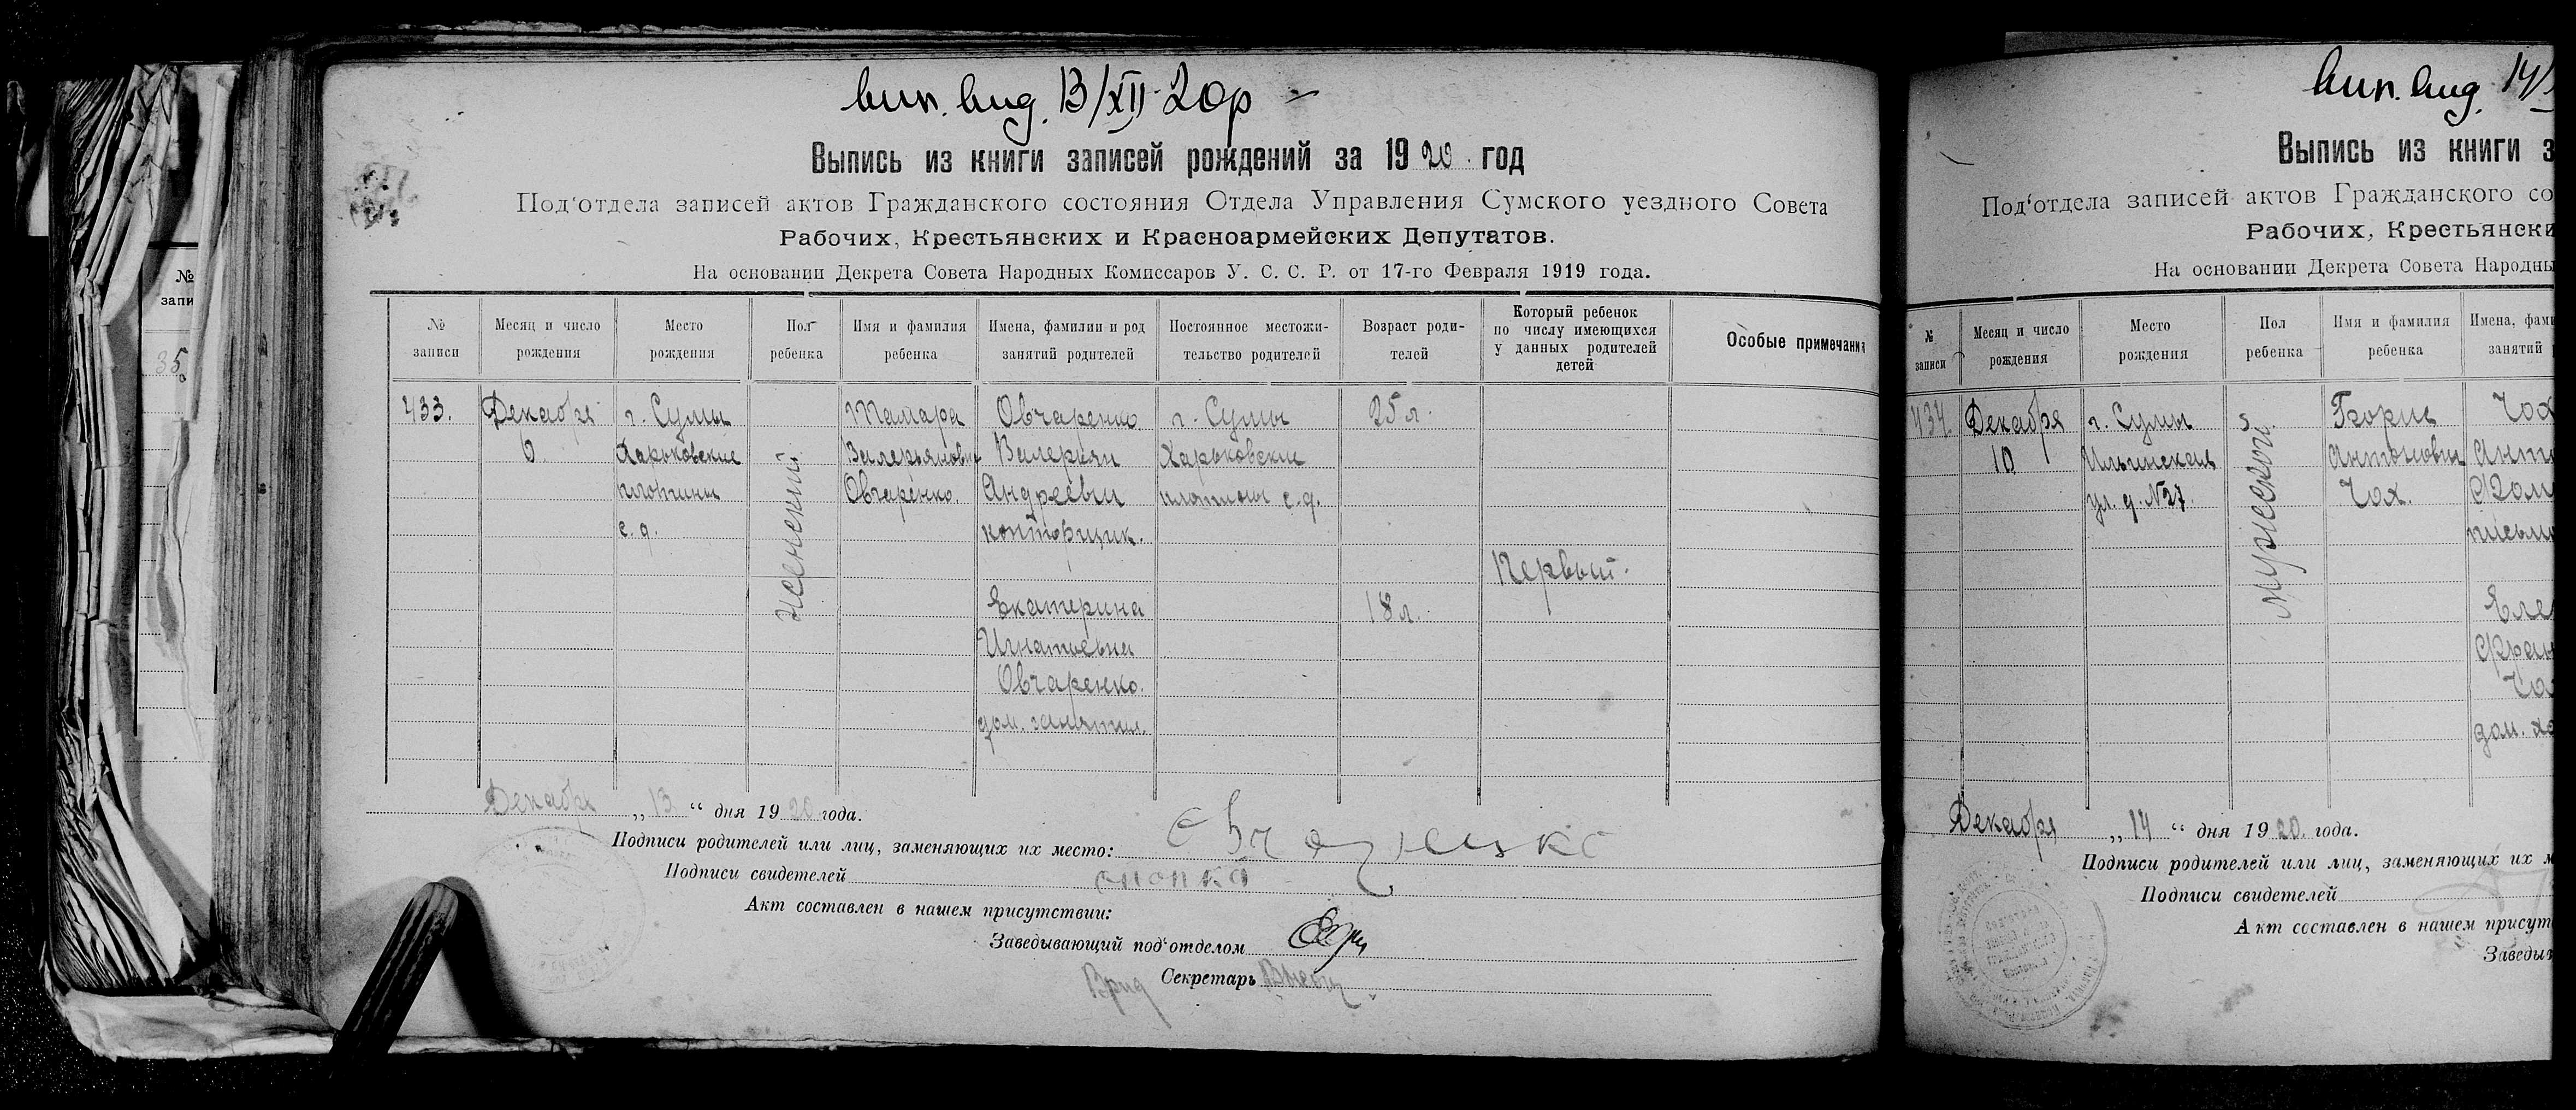 вип. вид. 13/XII 20р
Выпись из книги записей рождений за 1920 год
Под‘отдела записей актов Гражданского состояния Отдела Управления Сумского уездного Совета
Рабочих, Крестьянских и Красноармейских Депутатов.
На основании Декрета Совета Народных Комиссаров У. С. С. Р. от 17-го Февраля 1919 года.
№ записи
Месяц и число рождения
Место рождения
Пол ребенка
Имя и фамилия ребенка
Имена, фамилии и род занятий родителей
Постоянное местожи-тельство родителей
Возраст роди-телей
Который ребенок по числу имеющихся у данных родителей детей
Особые примечания
433.
Декабря
г. Сумы
Харьковские
плотины
с. д.
женский
Тамара
Валерьяновна
Овчаренко.
Овчаренко
Валерьян
Андреевич
конторщик.
Екатерина
Игнатьевна
Овчаренко.
дом. занятия.
г. Сумы
Харьковские
плотины с. д.
25 л.
18 л.
Первый.
Декабря „ 13 “ дня 1920 года.
Подписи родителей или лиц, заменяющих их место:
Подписи свидетелей
Акт составлен в нашем присутствии:
Заведывающий под‘отделом
Врид Секретарь
№
запи
35
вип. вид. 14/
Выпись из книги з
Под‘отдела записей актов Гражданского со
Рабочих, Крестьянски
На основании Декрета Совета Народны
№ записи
Месяц и число рождения
Место рождения
Пол ребенка
Имя и фамилия ребенка
Имена, фами
занятий
434.
Декабря
10
г. Сумы
Ильинская
ул. д. №27.
мужской
Антонович
Чох.
Чох
Анто
письм
Еле
Фран
Чо
дом. хо
Декабря „ 14 “ дня 1920. года.
Подписи родителей или лиц, заменяющих их м
Подписи свидетелей
Акт составлен в нашем присут
Заведы